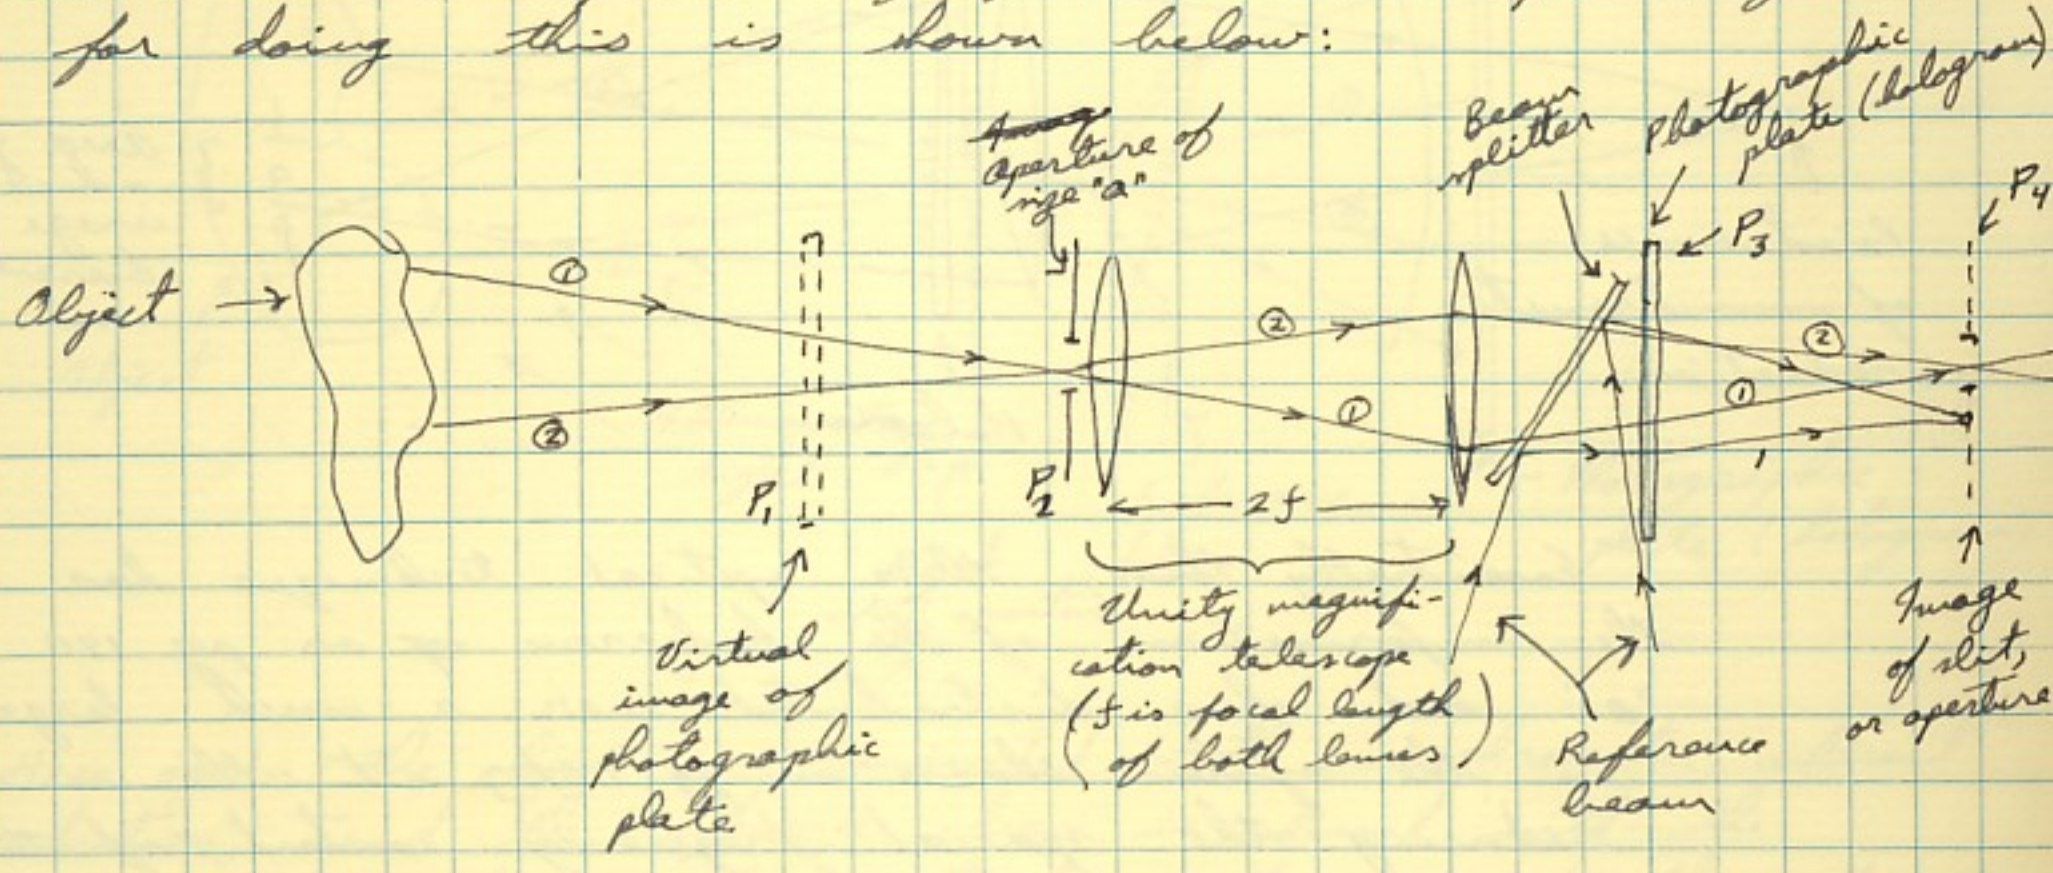 for doing this is shown below:
Aperture of
size "a"
Beam
splitter
Photographic
plate (hologram)
P4
P3
Object
①
②
②
①
②
①
P1
P2
2f
Virtual
image of
photographic
plate
Unity magnifi-
cation telescope
(f is focal length
of both lenses)
Reference
beam
Image
of slit,
or aperture